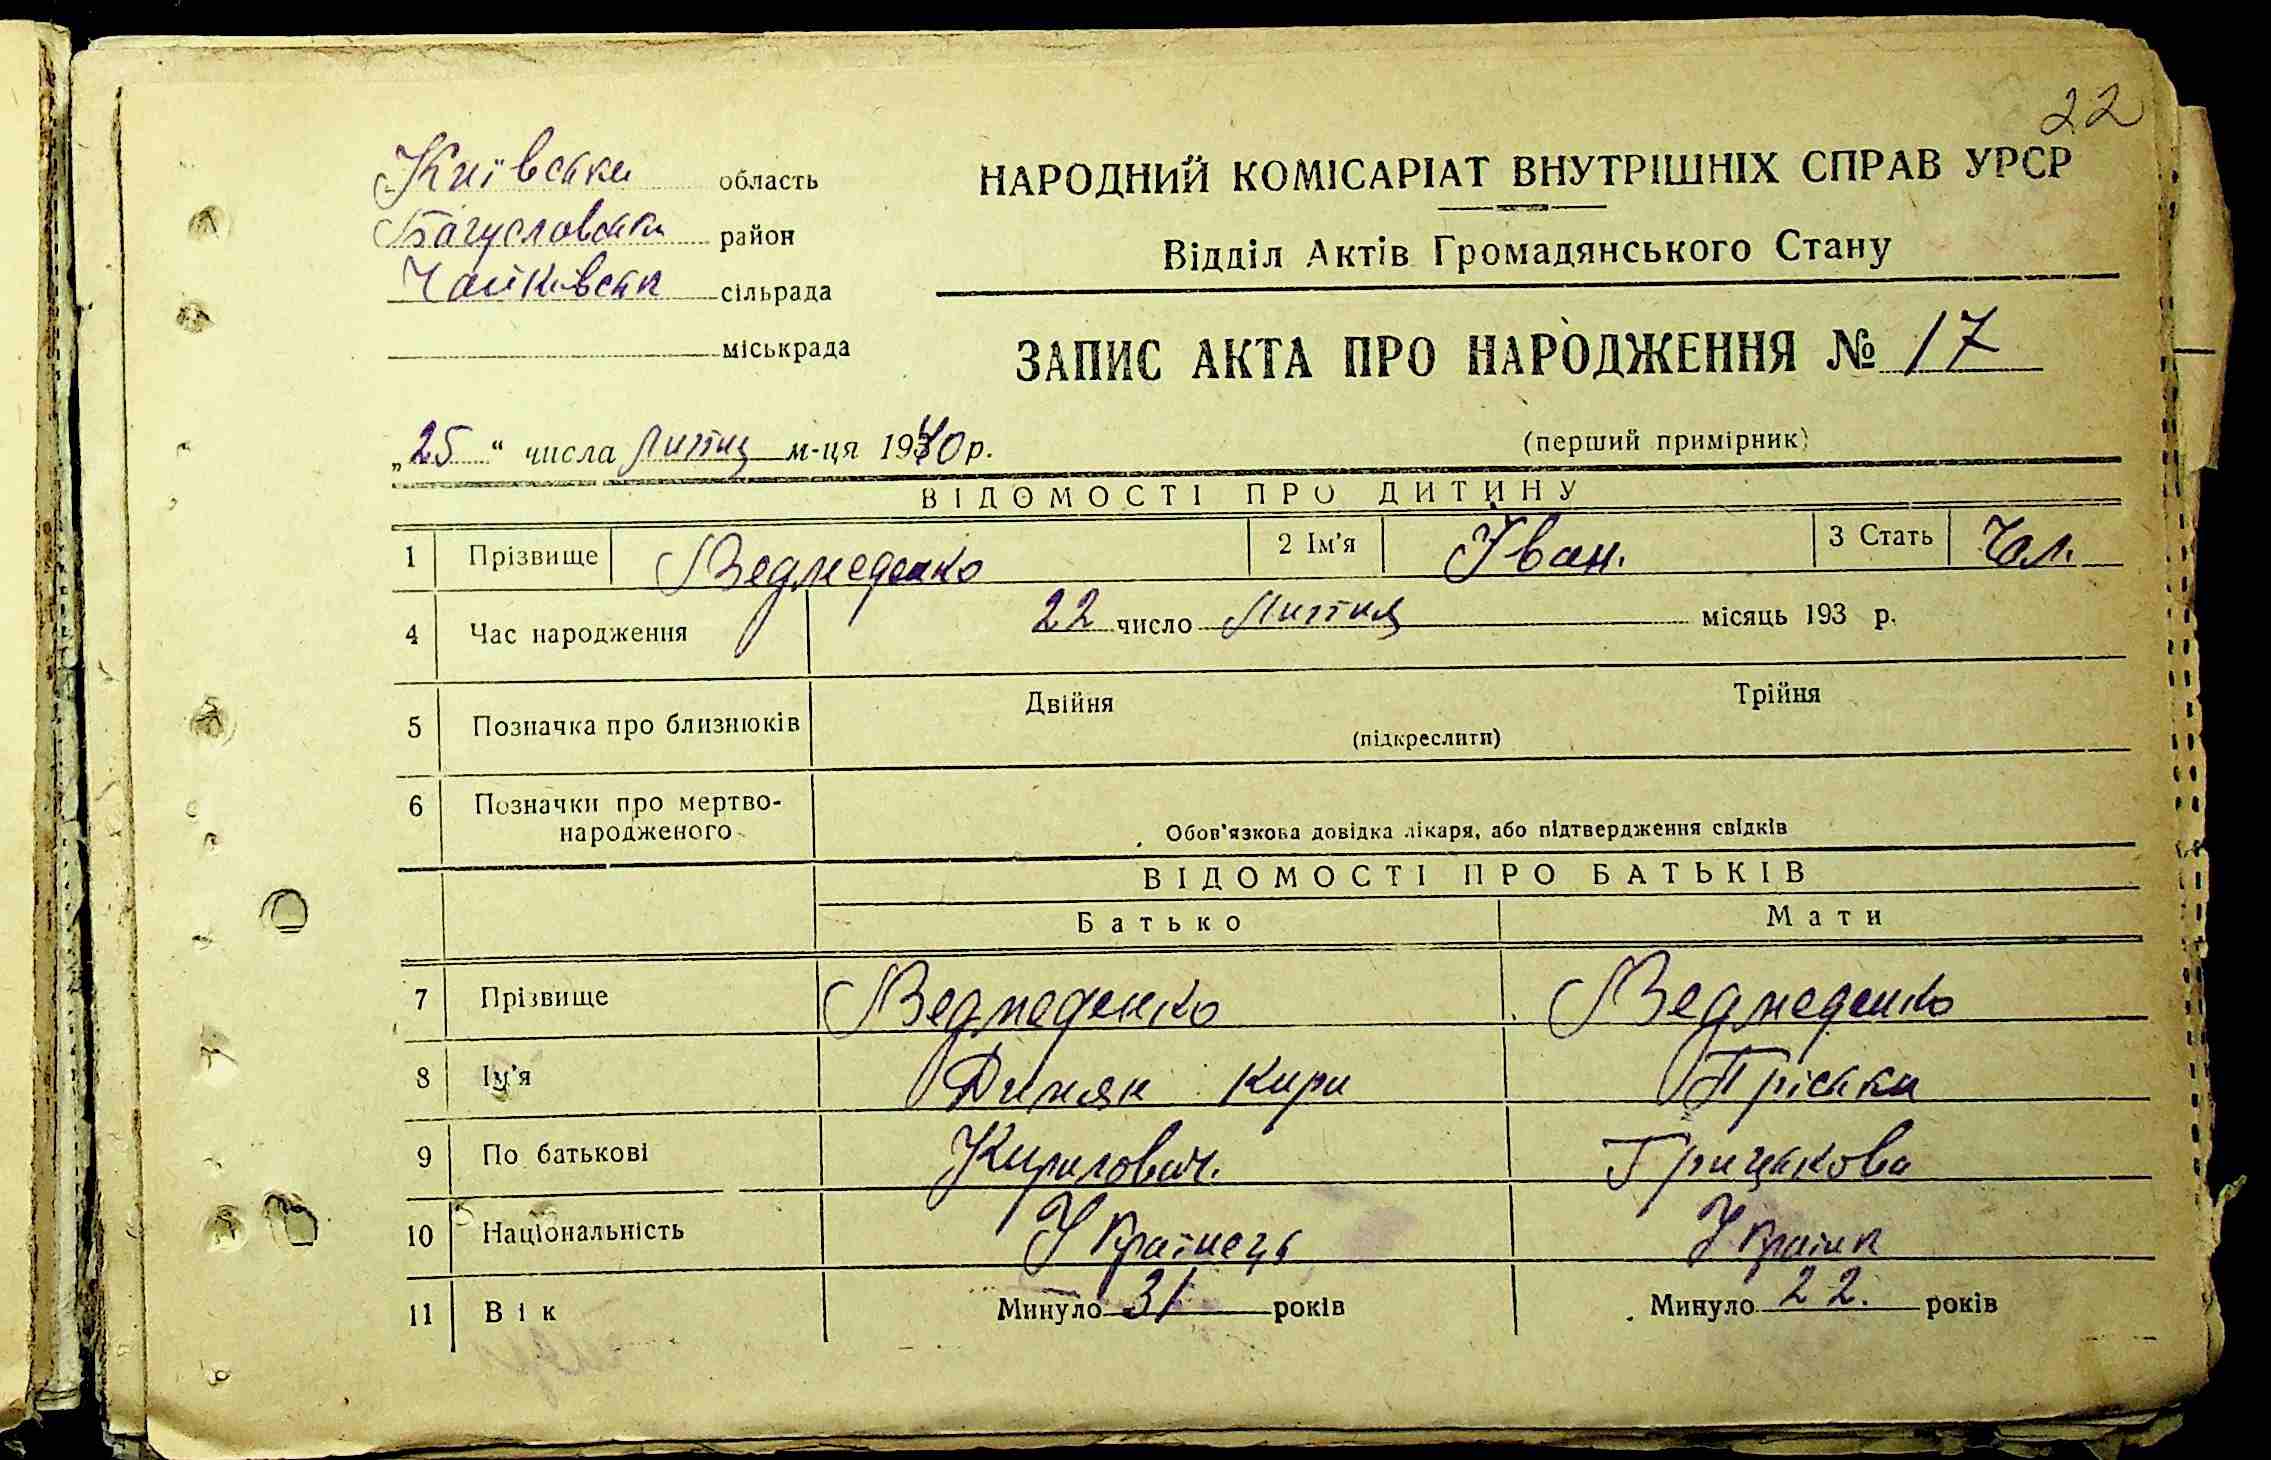 22
Київська область
Багуславськи район
Чайківськ сільрада
міськрада
НАРОДНИЙ КОМІСАРІАТ ВНУТРІШНІХ СПРАВ УРСР
Відділ Актів Громадянського Стану
ЗАПИС АКТА ПРО НАРОДЖЕННЯ № 17
„25“ числа Липня м-ця 1940 р.
(перший примірник)
ВІДОМОСТІ ПРО ДИТИНУ
1 Прізвище Ведмеденко 2 Ім'я Іван. 3 Стать Чол.
4 Час народження 22 число Липня місяць 193 р.
5 Позначка про близнюків Двійня Трійня
(підкреслити)
6 Позначки про мертво-
народженого
Обов'язкова довідка лікаря, або підтвердження свідків
ВІДОМОСТІ ПРО БАТЬКІВ
Батько Мати
7 Прізвище Ведмеденко Ведмеденко
8 Ім'я Димян Кири Пріська
9 По батькові Кирилович. Грицькова
10 Національність Українець Україн
11 Вік Минуло 31 років Минуло 22. років